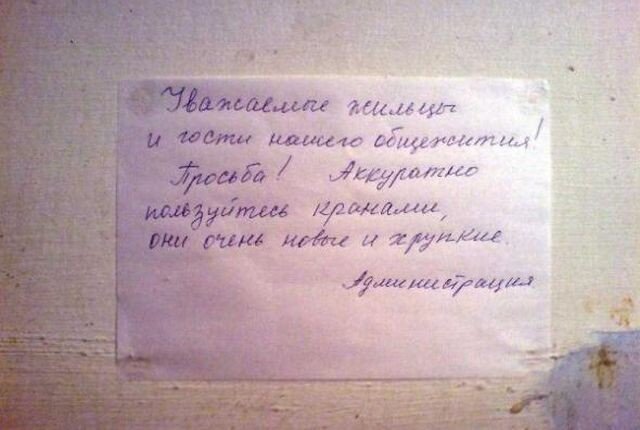 Уважаемые жильцы
и гости нашего общежития!
Просьба! Аккуратно
пользуйтесь кранами,
они очень новые и хрупкие.
Администрация